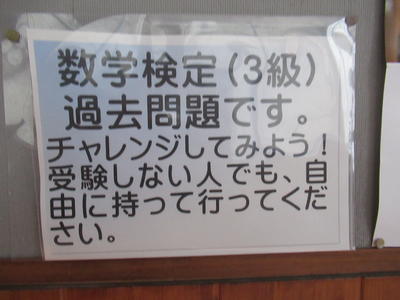 数学検定（3級）
過去問題です。
チャレンジしてみよう！
受験しない人でも、自
由に持って行ってくだ
さい。